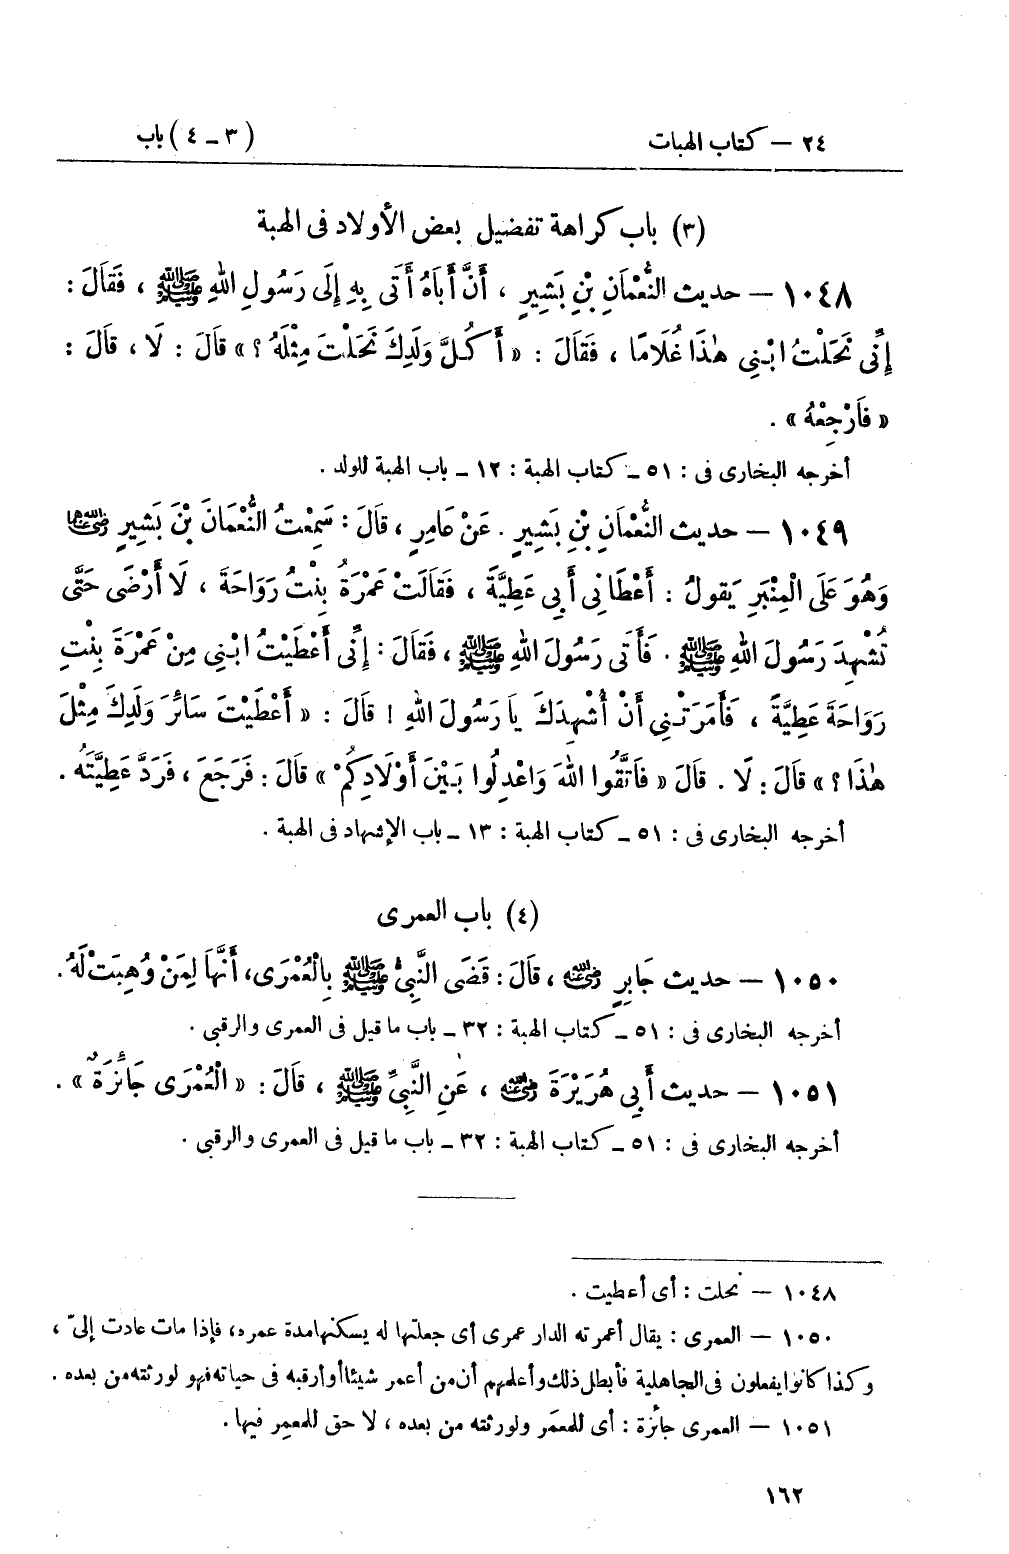 ٢٤ — كتاب الهبات
(٣ – ٤) باب
(٣) باب كراهة تفضيل بعض الأولاد فى الهبة
١٠٤٨ — حديث النُّعْمَانِ بْنِ بَشِيرٍ ، أَنَّ أَبَاهُ أَتَى بِهِ إِلَى رَسُولِ اللهِ ﷺ ، فَقَالَ :
إِنِّى نَحَلْتُ ابْنِى هٰذَا غُلَامًا ، فَقَالَ : « أَكُلَّ وَلَدِكَ نَحَلْتَ مِثْلَهُ ؟ » قَالَ : لَا ، قَالَ :
« فَارْجِعْهُ » .
أخرجه البخارى فى : ٥١ – كتاب الهبة : ١٢ – باب الهبة للولد .
١٠٤٩ — حديث النُّعْمَانِ بْنِ بَشِيرٍ . عَنْ عَامِرٍ ، قَالَ : سَمِعْتُ النُّعْمَانَ بْنَ بَشِيرٍ رضي الله عنهما
وَهُوَ عَلَى الْمِنْبَرِ يَقولُ : أَعْطَانِى أَبِى عَطِيَّةً ، فَقَالَتْ عَمْرَةُ بِنْتُ رَوَاحَةَ ، لَا أَرْضَى حَتَّى
تُشْهِدَ رَسُولَ اللهِ ﷺ . فَأَتَى رَسُولَ اللهِ ﷺ ، فَقَالَ : إِنِّى أَعْطَيْتُ ابْنِى مِنْ عَمْرَةَ بِنْتِ
رَوَاحَةَ عَطِيَّةً ، فَأَمَرَتْنِى أَنْ أُشْهِدَكَ يَا رَسُولَ اللهِ ! قَالَ : « أَعْطَيْتَ سَائِرَ وَلَدِكَ مِثْلَ
هٰذَا ؟ » قَالَ : لَا . قَالَ « فَاتَّقُوا اللهَ وَاعْدِلُوا بَيْنَ أَوْلَادِكُمْ » قَالَ : فَرَجَعَ ، فَرَدَّ عَطِيَّتَهُ .
أخرجه البخارى فى : ٥١ – كتاب الهبة : ١٣ – باب الإشهاد فى الهبة .
(٤) باب العمرى
١٠٥٠ — حديث جَابِرٍ رضي الله عنه ، قَالَ : قَضَى النَّبِىُّ ﷺ بِالْعُمْرَى، أَنَّهَا لِمَنْ وُهِبَتْ لَهُ .
أخرجه البخارى فى : ٥١ – كتاب الهبة : ٣٢ – باب ما قيل فى العمرى والرقبى .
١٠٥١ — حديث أَبِى هُرَيْرَةَ رضي الله عنه ، عَنِ النَّبِىِّ ﷺ ، قَالَ : « الْعُمْرَى جَائِزَةٌ » .
أخرجه البخارى فى : ٥١ – كتاب الهبة : ٣٢ – باب ما قيل فى العمرى والرقبى .
١٠٤٨ — نحلت : أى أعطيت .
١٠٥٠ — العمرى : يقال أعمرته الدار عمرى أى جعلتها له يسكنها مدة عمره، فإذا مات عادت إلىّ ،
وكذا كانوا يفعلون فى الجاهلية فأبطل ذلك وأعلمهم أن من أعمر شيئا أو أرقبه فى حياته فهو لورثته من بعده .
١٠٥١ — العمرى جائزة : أى للمعمَر ولورثته من بعده ، لا حق للمعمِر فيها .
١٦٢